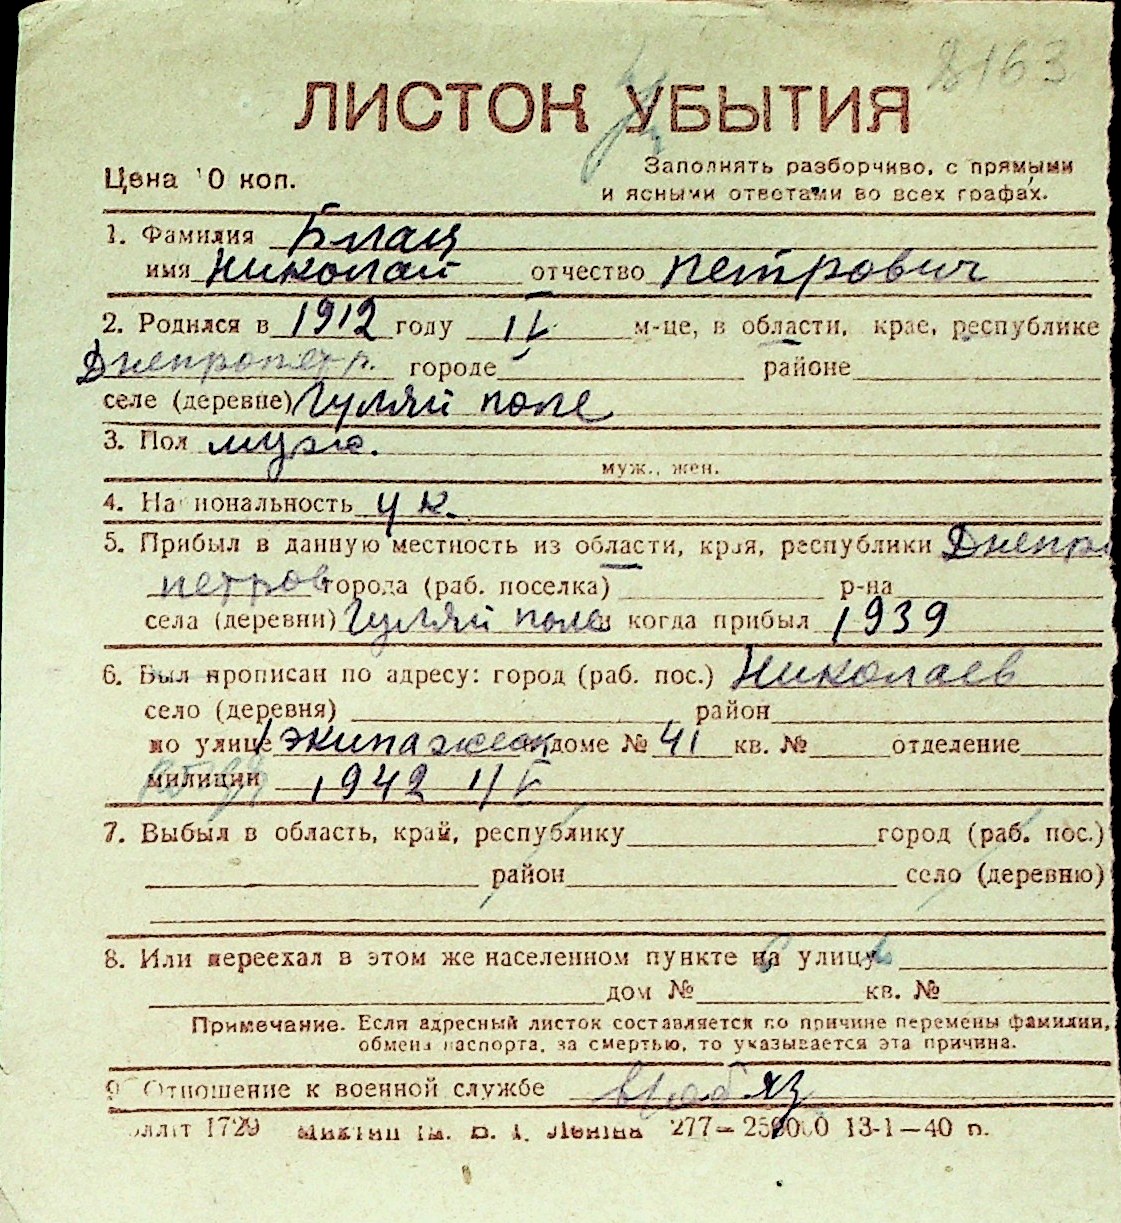 8163
ЛИСТОК УБЫТИЯ
Цена 10 коп.
Заполнять разборчиво, с прямыми
и ясными ответами во всех графах.
1. Фамилия Блащ
имя Николай отчество Петрович
2. Родился в 1912 году IV м-це, в области, крае, республике
Днепропетр. городе районе
селе (деревне) Гуляй поле
3. Пол муж.
муж., жен.
4. Национальность ук.
5. Прибыл в данную местность из области, края, республики Днепро
петров города (раб. поселка) р-на
села (деревни) Гуляй поле и когда прибыл 1939
6. Был прописан по адресу: город (раб. пос.) Николаев
село (деревня) район
по улице 1 экипажеск доме № 41 кв. № отделение
милиции 1942 IV
7. Выбыл в область, край, республику город (раб. пос.)
район село (деревню)
8. Или переехал в этом же населенном пункте на улицу
дом № кв. №
Примечание. Если адресный листок составляется по причине перемены фамилии,
обмена паспорта, за смертью, то указывается эта причина.
9. Отношение к военной службе
1729 ім. В. І. Леніна 277— 13-1—40 р.